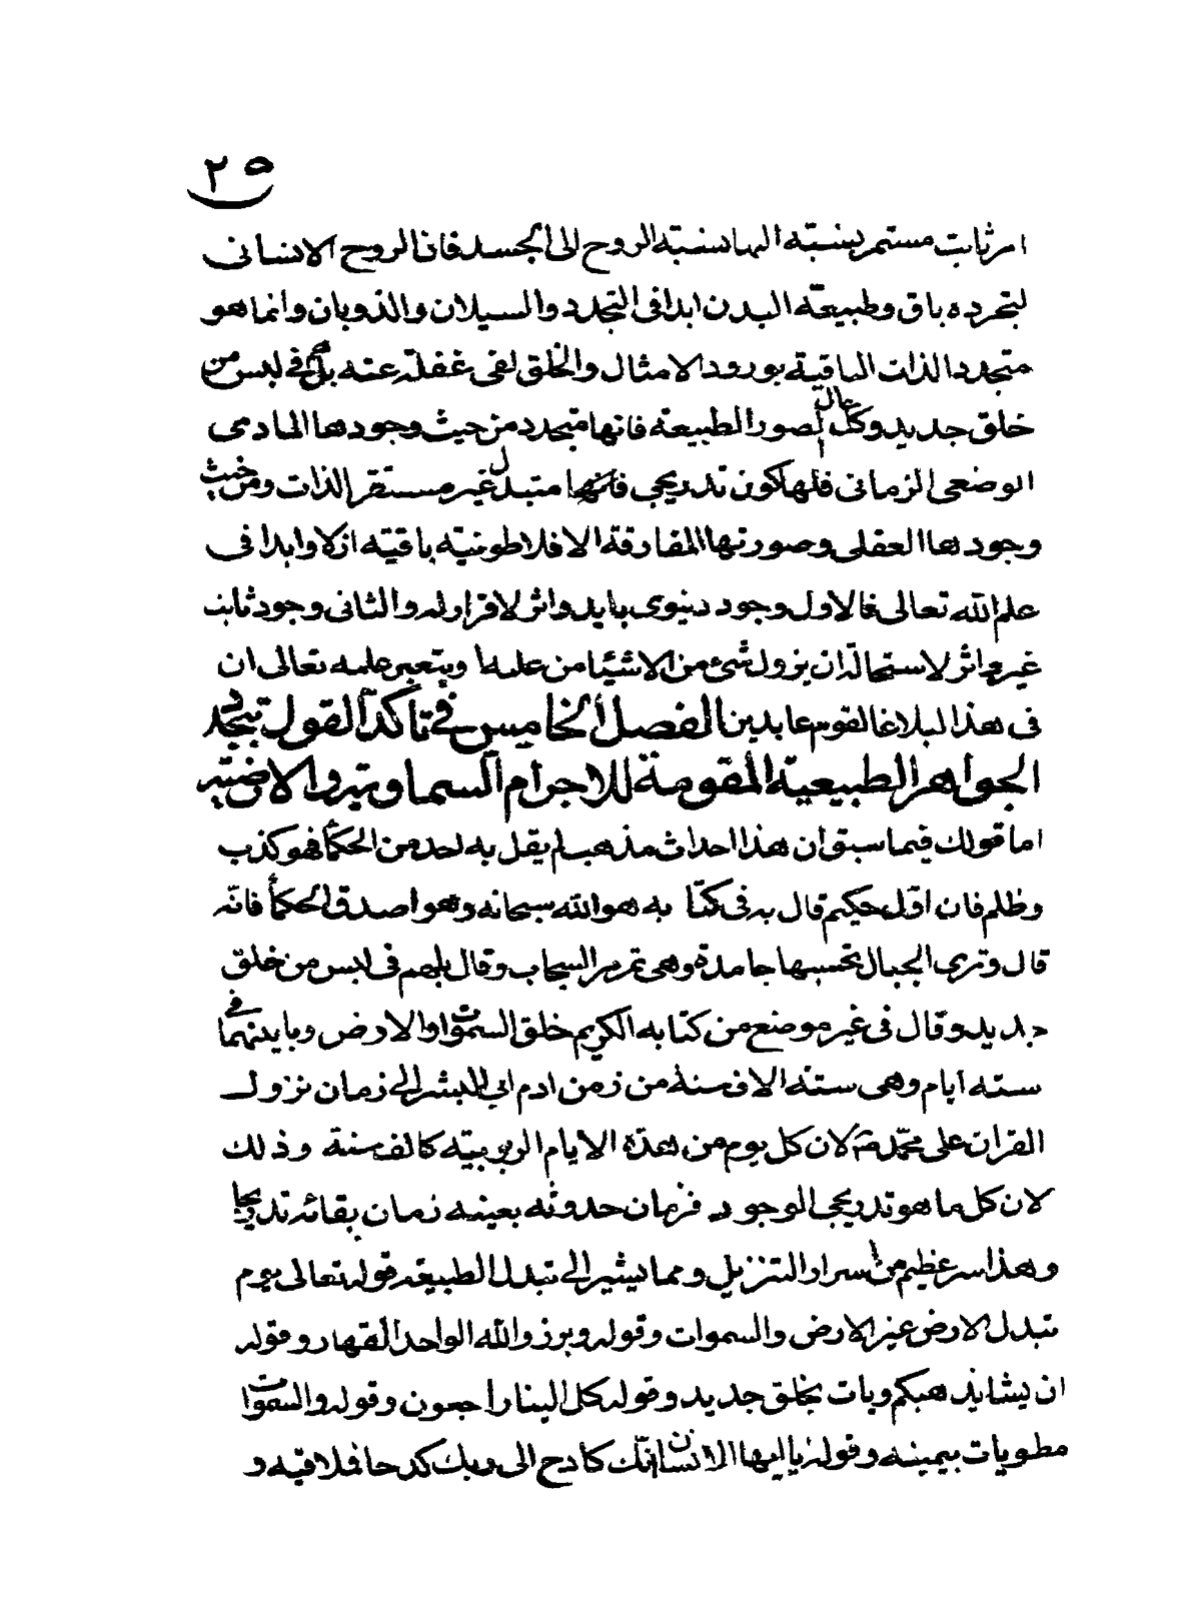 ٢٥
امر ثابت مستمر بنسبته اليها نسبته الروح الى الجسد فان الروح الانسانى
لتجرده باق وطبيعة البدن ابدا فى التجدد والسيلان والذوبان وانما هو
متجدد الذات الباقية بورود الامثال والخلق لفى غفلة عنه بل هم فى لبس من
خلق جديد وكك حال الصور الطبيعة فانها متجدد من حيث وجودها المادى
الوضعى الزمانى فلها كون تدريجى متبدل غير مستقر الذات ومن حيث
وجودها العقلى وصورتها المفارقة الافلاطونية باقيته ازلا وابدا فى
علم الله تعالى فالاول وجود دنيوى بايد داثر لا قرار له والثانى وجود ثابت
غير داثر لاستحالة ان يزول شئ من الاشيا من علمه او يتغير علمه تعالى ان
فى هذا لبلاغا لقوم عابدين الفصل الخامس فى تاكد القول بتجدد
الجواهر الطبيعية المقومة للاجرام السماوية والارضية
اما قولك فيما سبق ان هذا احداث مذهب لم يقل به احد من الحكما فهو كذب
وظلم فان اول حكيم قال به فى كتابه هو الله سبحانه وهو اصدق الحكما فانه
قال وترى الجبال تحسبها جامدة وهى تمر مر السحاب وقال بل هم فى لبس من خلق
جديد وقال فى غير موضع من كتابه الكريم خلق السموات والارض وما بينهما فى
سته ايام وهى ستة الاف سنة من زمن ادم ابى البشر الى زمان نزول
القران على محمد ص لان كل يوم من هذه الايام الربوبيته كالف سنة وذلك
لان كل ما هو تدريجى الوجود فزمان حدوثه بعينه زمان بقائه تدريجا
وهذا سر عظيم من اسرار التنزيل ومما يشير الى تبدل الطبيعة قوله تعالى يوم
تبدل الارض غير الارض والسموات وقوله وبرزوا لله الواحد القهار وقوله
ان يشا يذهبكم ويات بخلق جديد وقوله كل الينا راجعون وقوله والسموات
مطويات بيمينه وقوله يا ايها الانسان انك كادح الى ربك كدحا فملاقيه و